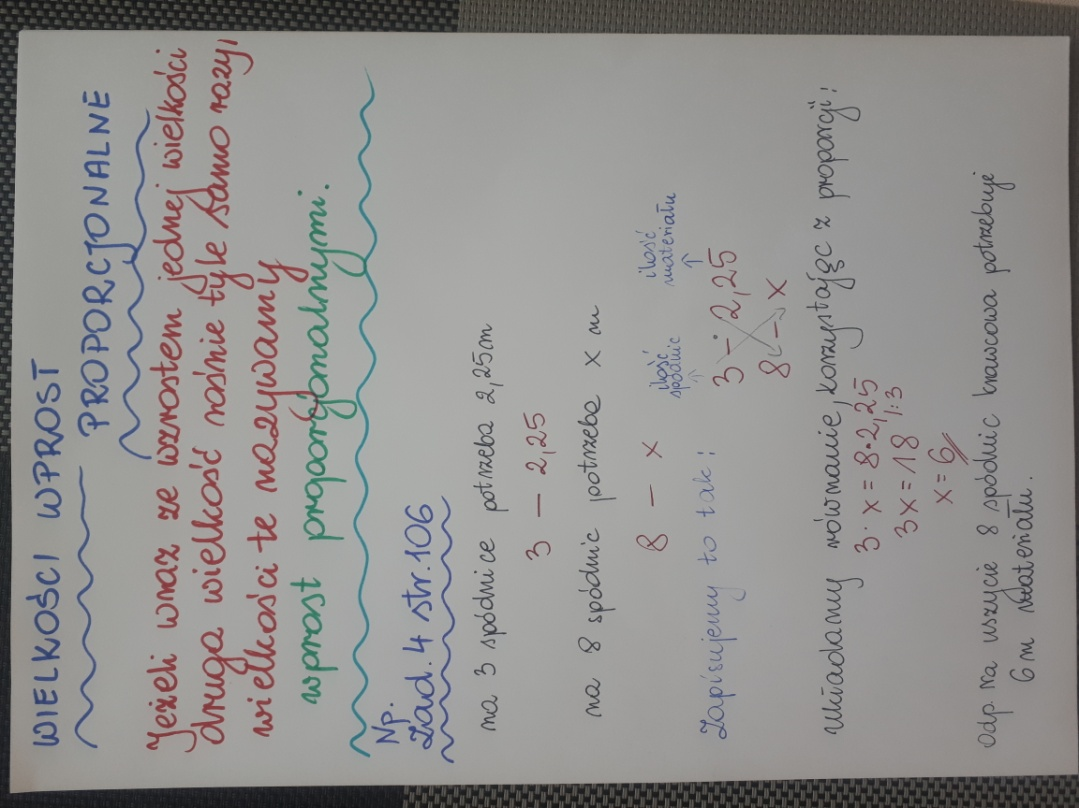 WIELKOŚCI WPROST
PROPORCJONALNE
Jeżeli wraz ze wzrostem jednej wielkości
druga wielkość rośnie tyle samo razy,
wielkości te nazywamy
wprost proporcjonalnymi.
Np.
Zad. 4 str. 106
na 3 spódnice potrzeba 2,25m
3 — 2,25
na 8 spódnic potrzeba x m
8 — x
Zapisujemy to tak:
ilość spódnic ilość materiału
3 — 2,25
8 — x
Układamy równanie, korzystając z proporcji:
3·x = 8·2,25
3x = 18 /:3
x = 6
Odp. na uszycie 8 spódnic krawcowa potrzebuje
6 m materiału.